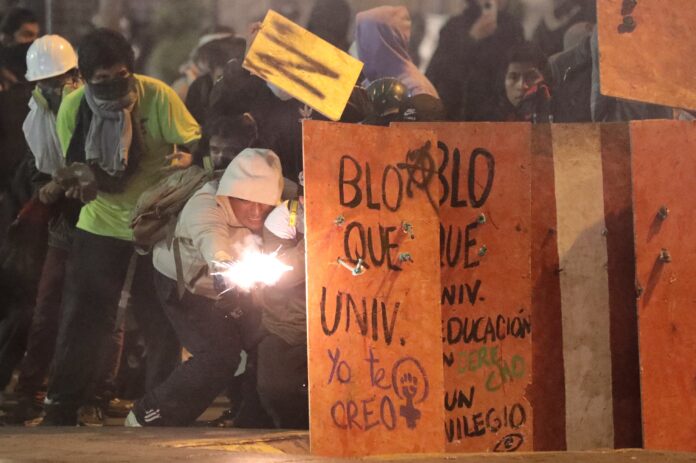 BLO
QUE
UNIV.
Yo te
CREO
BLO
QUE
NIV.
EDUCACIÓN
DERE
CHO
UN
VILEGIO